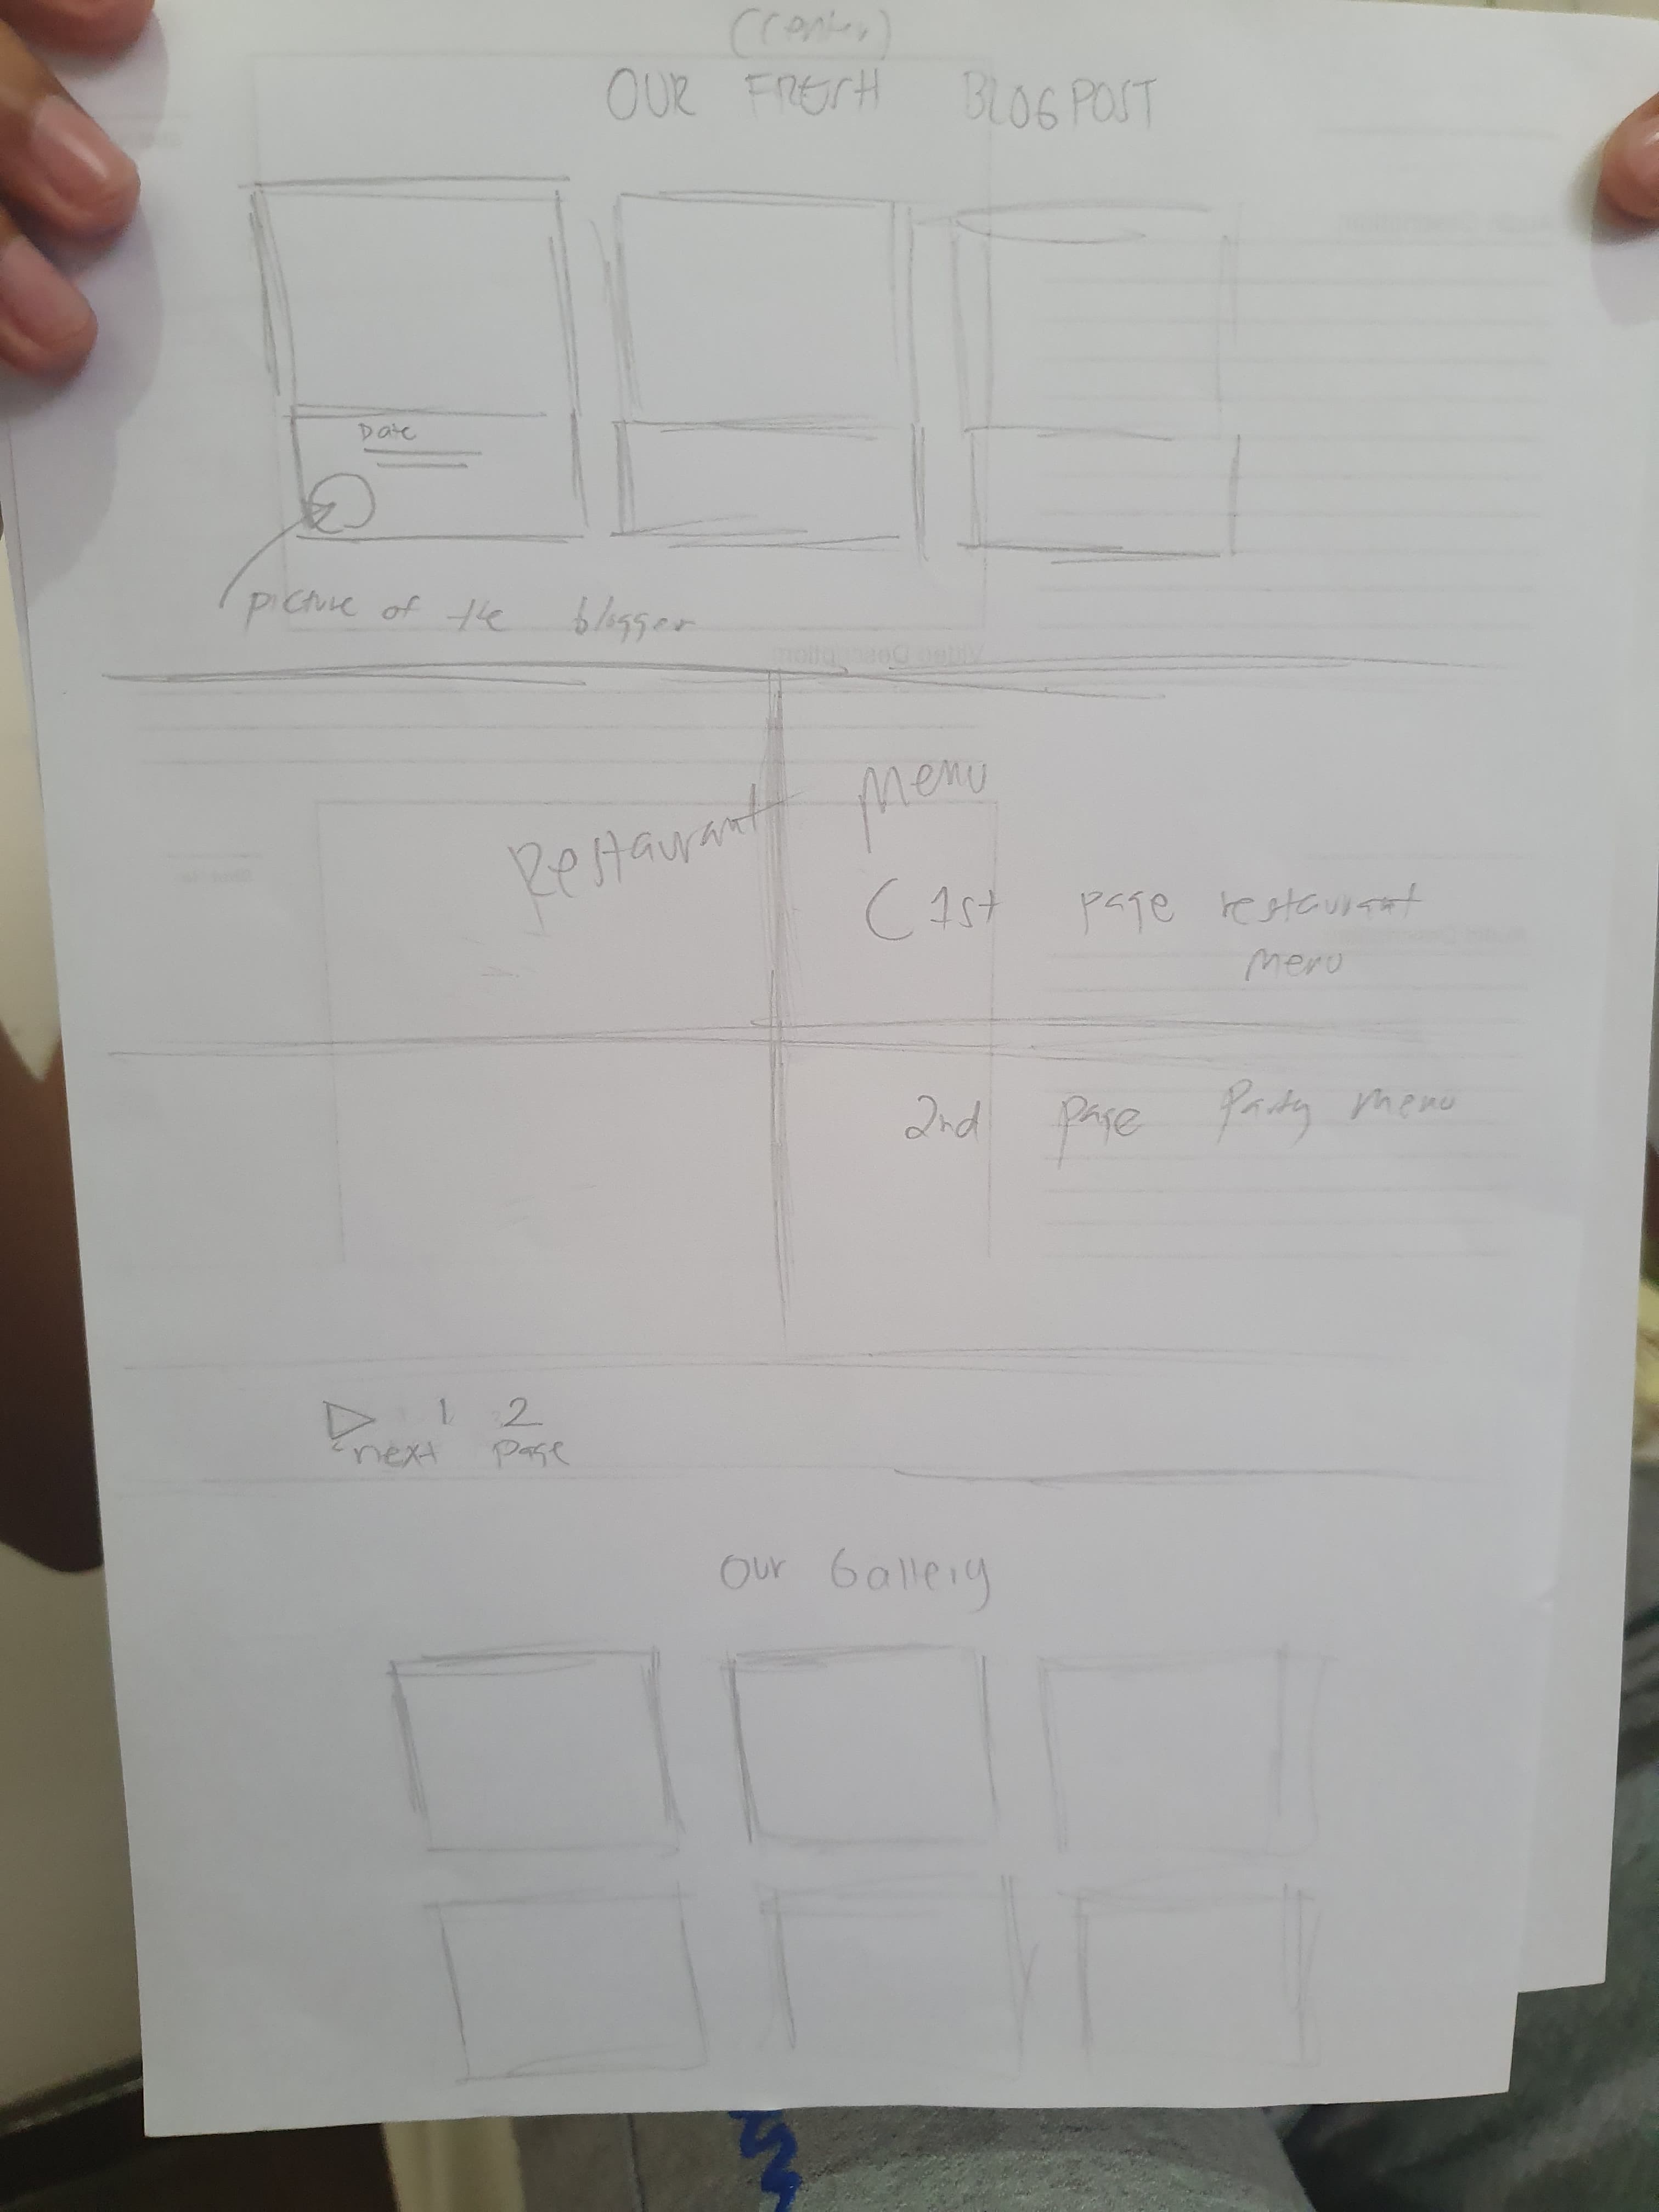 (Center)
OUR FRESH BLOGPOST
Date
picture of the blogger
Restaurant Menu
(1st page restaurant
menu
2nd page Party menu
1 2
next page
Our Gallery